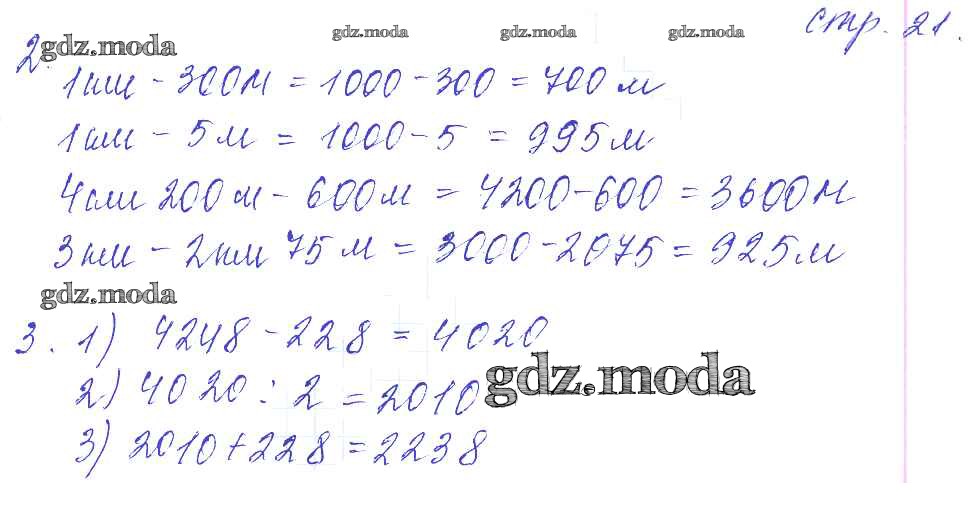 gdz.moda gdz.moda gdz.moda стр. 21.
2.
1км - 300м = 1000 - 300 = 700 м
1км - 5 м = 1000 - 5 = 995 м
4км 200 м - 600 м = 4200 - 600 = 3600 м
3 км - 2 км 75 м = 3000 - 2075 = 925 м
gdz.moda
3. 1) 4248 - 228 = 4020
2) 4020 : 2 = 2010 gdz.moda
3) 2010 + 228 = 2238